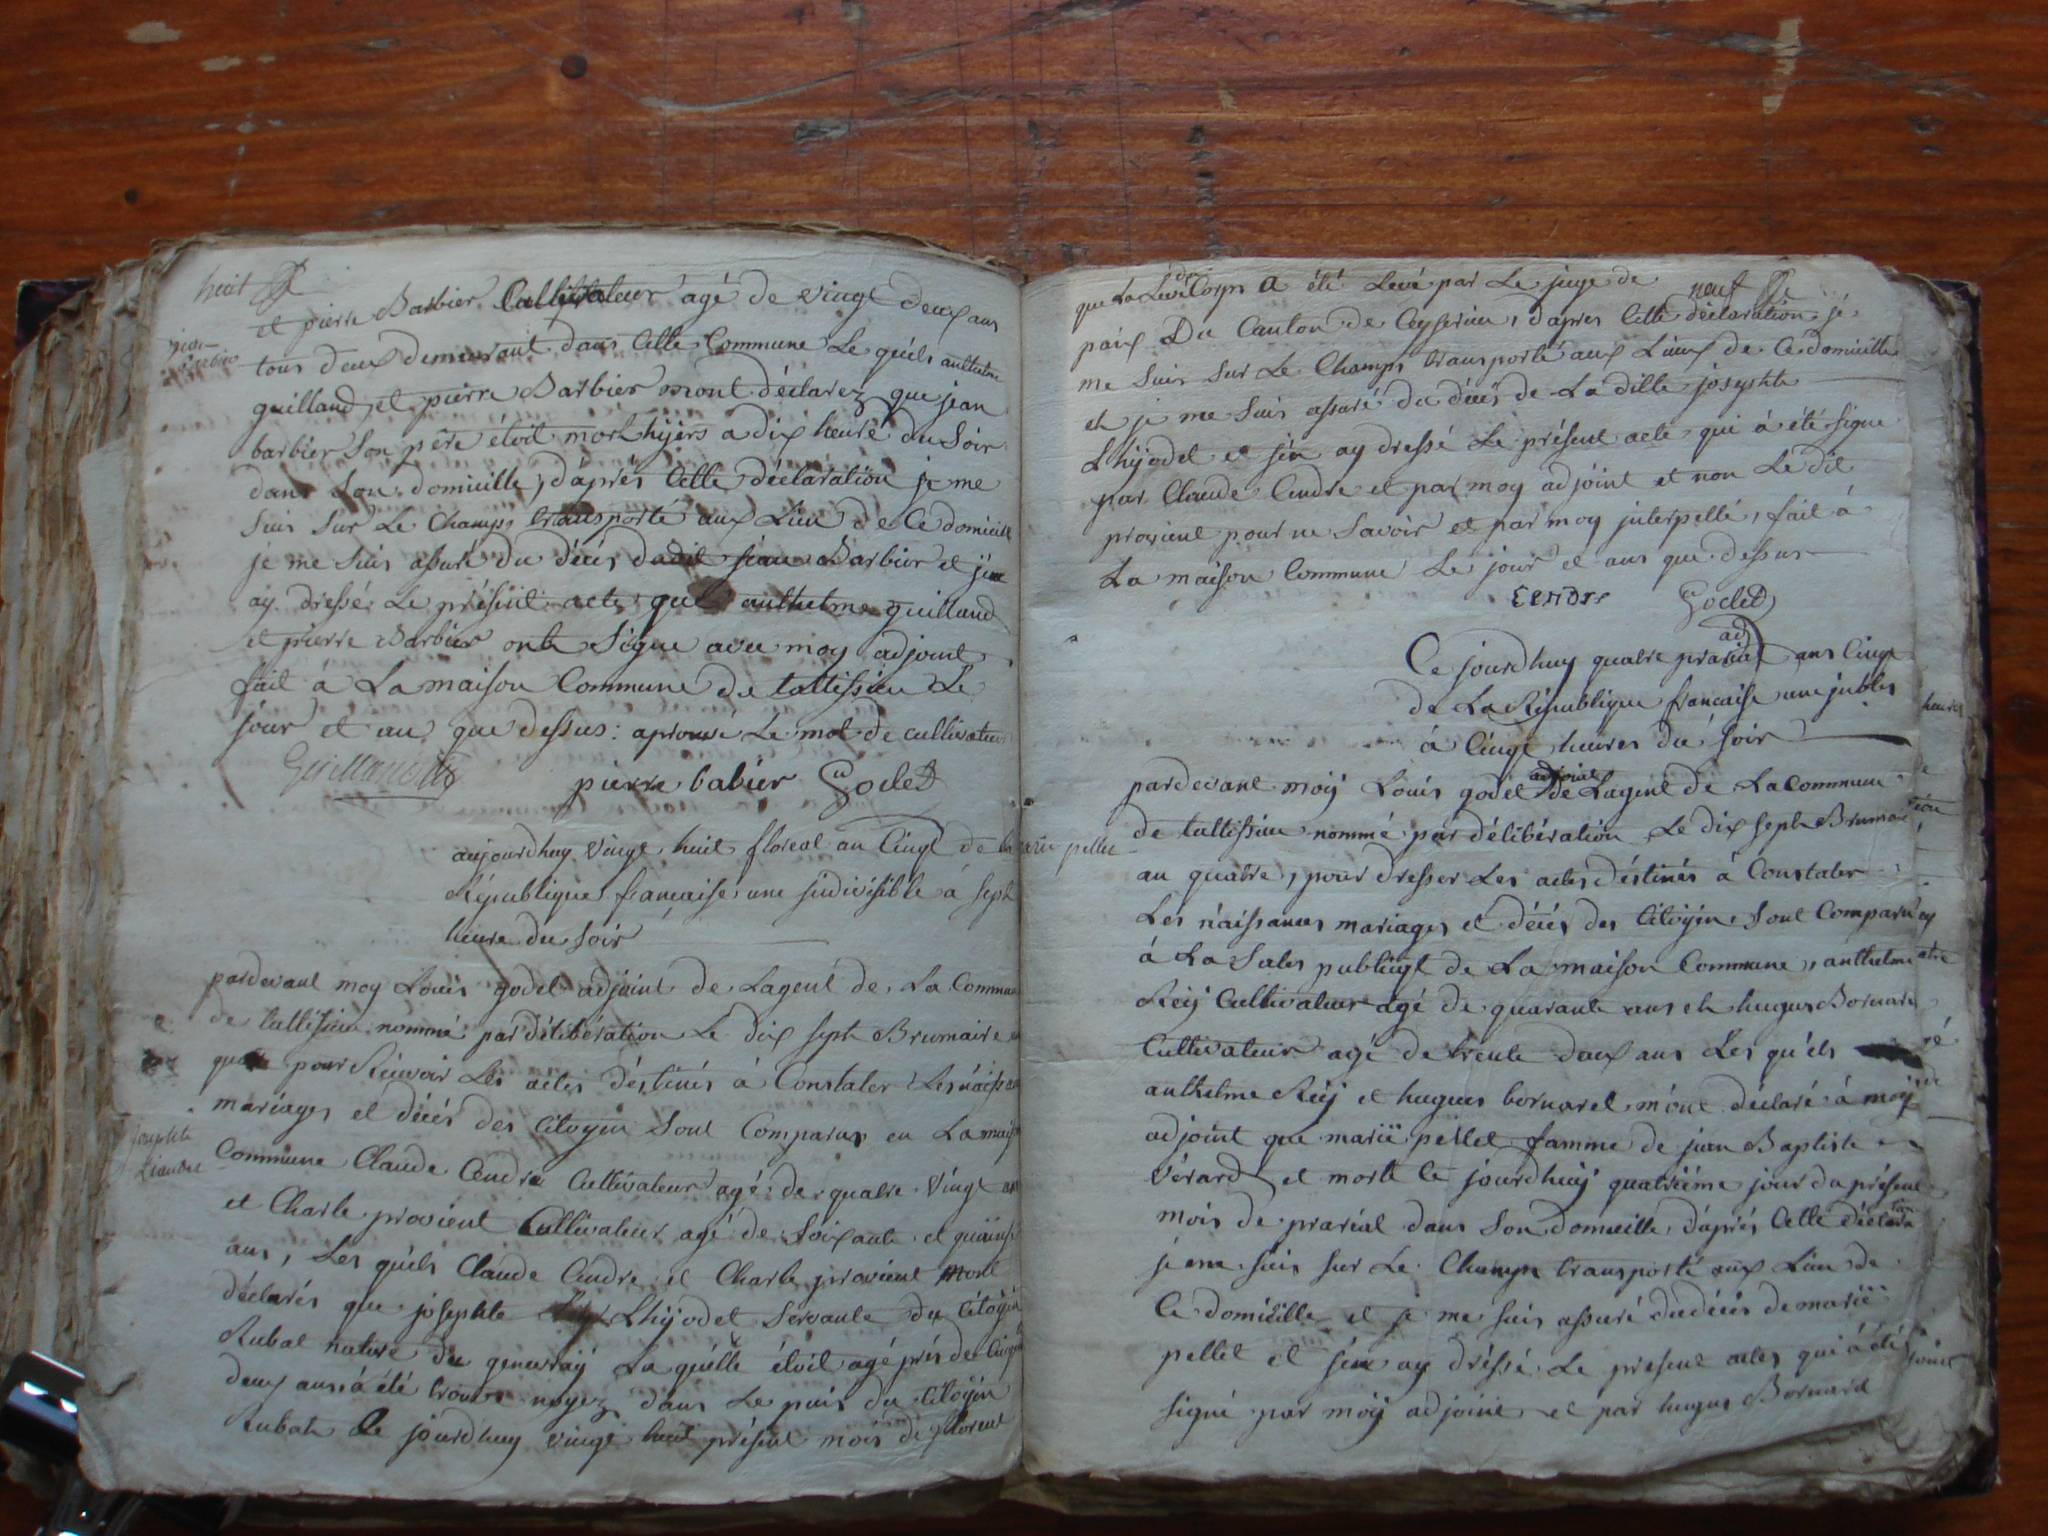 huit
et pierre Barbier Cultivateur agé de vingt deux ans
tous deux demeurant dans Cette Commune Le quéls anthelme
guilland et pierre Barbier mont déclarez que jean
barbier Son pére étoit mort hijers a dix heure du Soir
dans Son domicille, d'aprés Cette déclaration je me
Suis Sur Le Champs transporté aux Lieu de Ce domicille
je me Suis assuré du décés dudit jean Barbier et jen
ay dressé Le présent acte que anthelme guilland
et pierre Barbier onts Signe avec moy adjoint
fait á La maison Commune de tallissieu Le
jour et an que dessus: aprouvé Le mot de cultivateur
pierre babier Godet
aujourdhuy vingt huit floreal an Cinqt de la
République française une jndivisible á Sept
heure du Soir
pardevant moy Louis godet adjoint de Lagent de La Commune
de tallissieu nommé par délibération Le dix sept Brumaire
quatre pour Recevoir Les actes déstinés á Constater Les naiss
mariages et décés des Citoyin Sont Comparus en La maison
Josephte
Commune Claude Cendre Cultivateur agé de quatre vingt ans
et Charle provient Cultivateur agé de Soixante et quainse
ans, Les quéls Claude Cendre et Charle provient mont
déclarés que josephte Lhijodet Servante du Citoyin
Rubat native du genevraij La quélle étoit agé prés de Cinquante
deux ans á été trouve noyez dans Le puis du Citoyin
Rubat Ce jourdhuy vingt huit présent mois de floreal
neuf
que La Levé de Corps a été Levé par Le juge de
paix Du Canton de Ceyserieu, d'apres Cette déclaration je
me Suis Sur Le Champs transporté aux Lieux de Ce domicille
et je me Suis assuré du décés de La ditte josephte
Lhijodet et jén ay dressé Le présent acte qui á été Signe
par Claude Cendre et par moy adjoint et non Le dit
provient pour ne Savoir et par moy jnterpellé, fait á
La maison Commune Le jour et ans que dessus
cendre Godet
adj
Ce jourdhuy quatre prarial ans Cinqt
de La République francaise une
á Cinqt heures du Soir
pellet
pardevant moij Louis godet adjoint de Lagent de La Commune
de tallissieu nommé par délibération Le dix sept Brumaire
an quatre, pour dresser Les actes déstinés á Constater
Les naissances mariages et décés des Citoyin Sont Comparu
á La Sales publiqt de La maison Commune, anthelme
Reij Cultivateur agé de quarante ans et hugus Bornard
Cultivateur agé de trente deux ans Les quéls
anthelme Reij et hugues bornaret mónt déclaré á moij
adjoint que marië pellet famme de jean Baptiste
vérard et morte Ce jourdhuij quatriéme jour du présent
mois de prarial dans Son domicille d'aprés Cette déclaration
je me Suis Sur Le Champs transporté aux Lieu de
Ce domicille et je me Suis assuré du décés de marië
pellet et jén ay dréssé Le present actes qui á été
signé par moij adjoint et par hugus Bornard